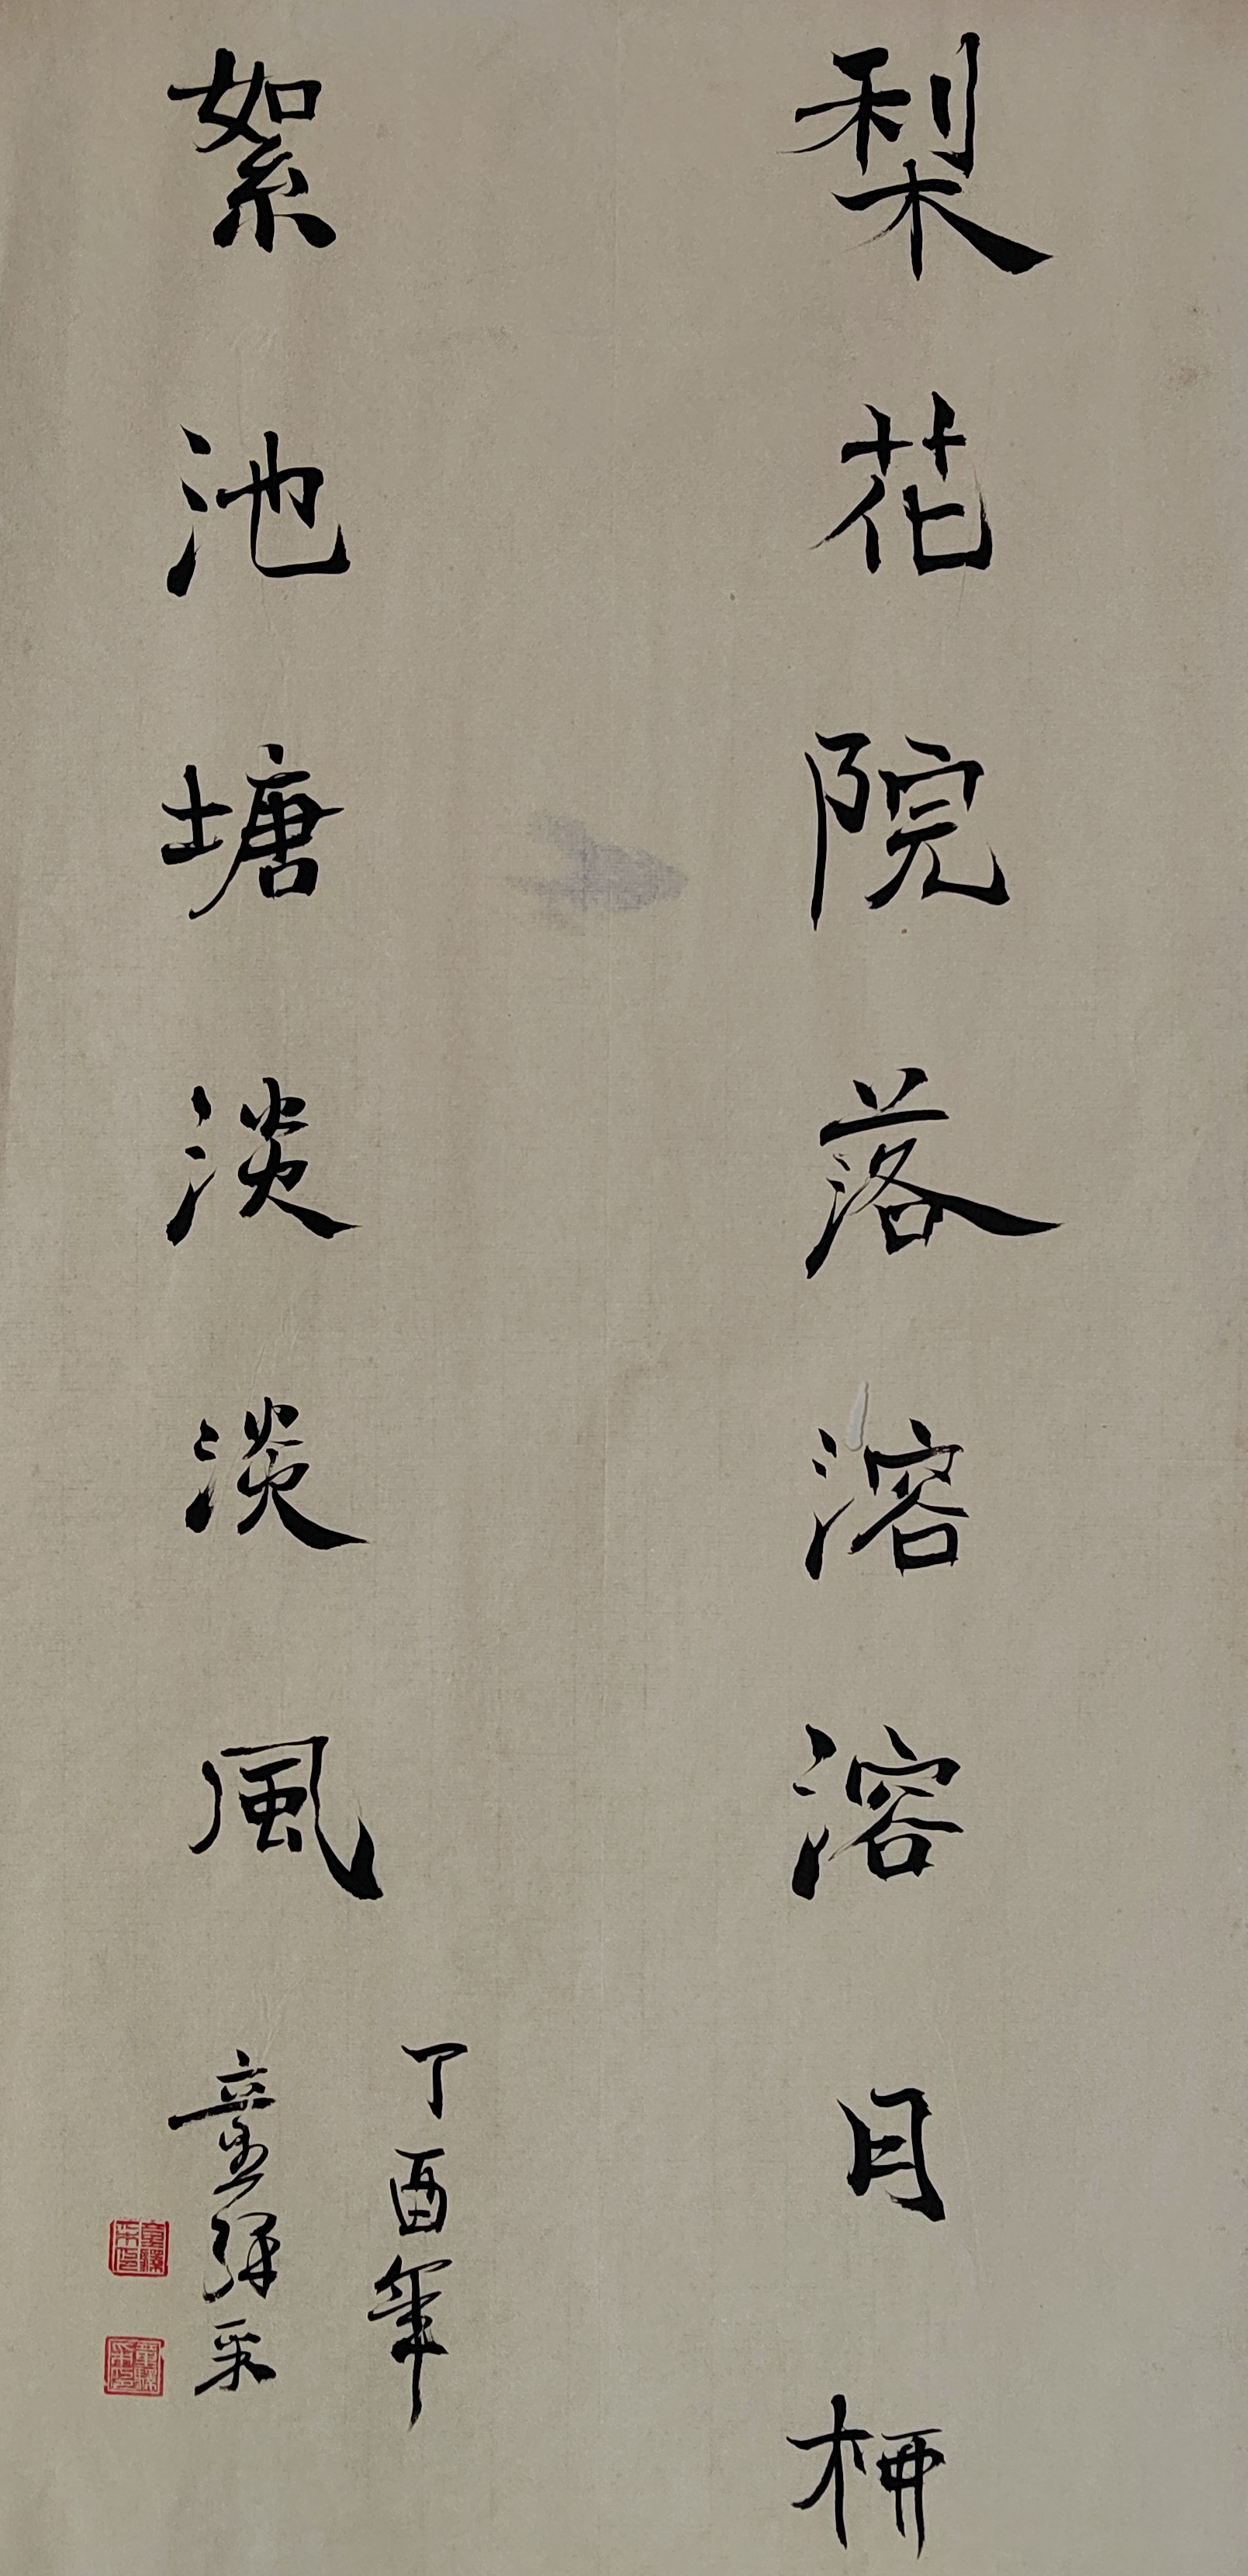 梨花院落溶溶月柳
絮池塘淡淡風
丁酉年
童彈采